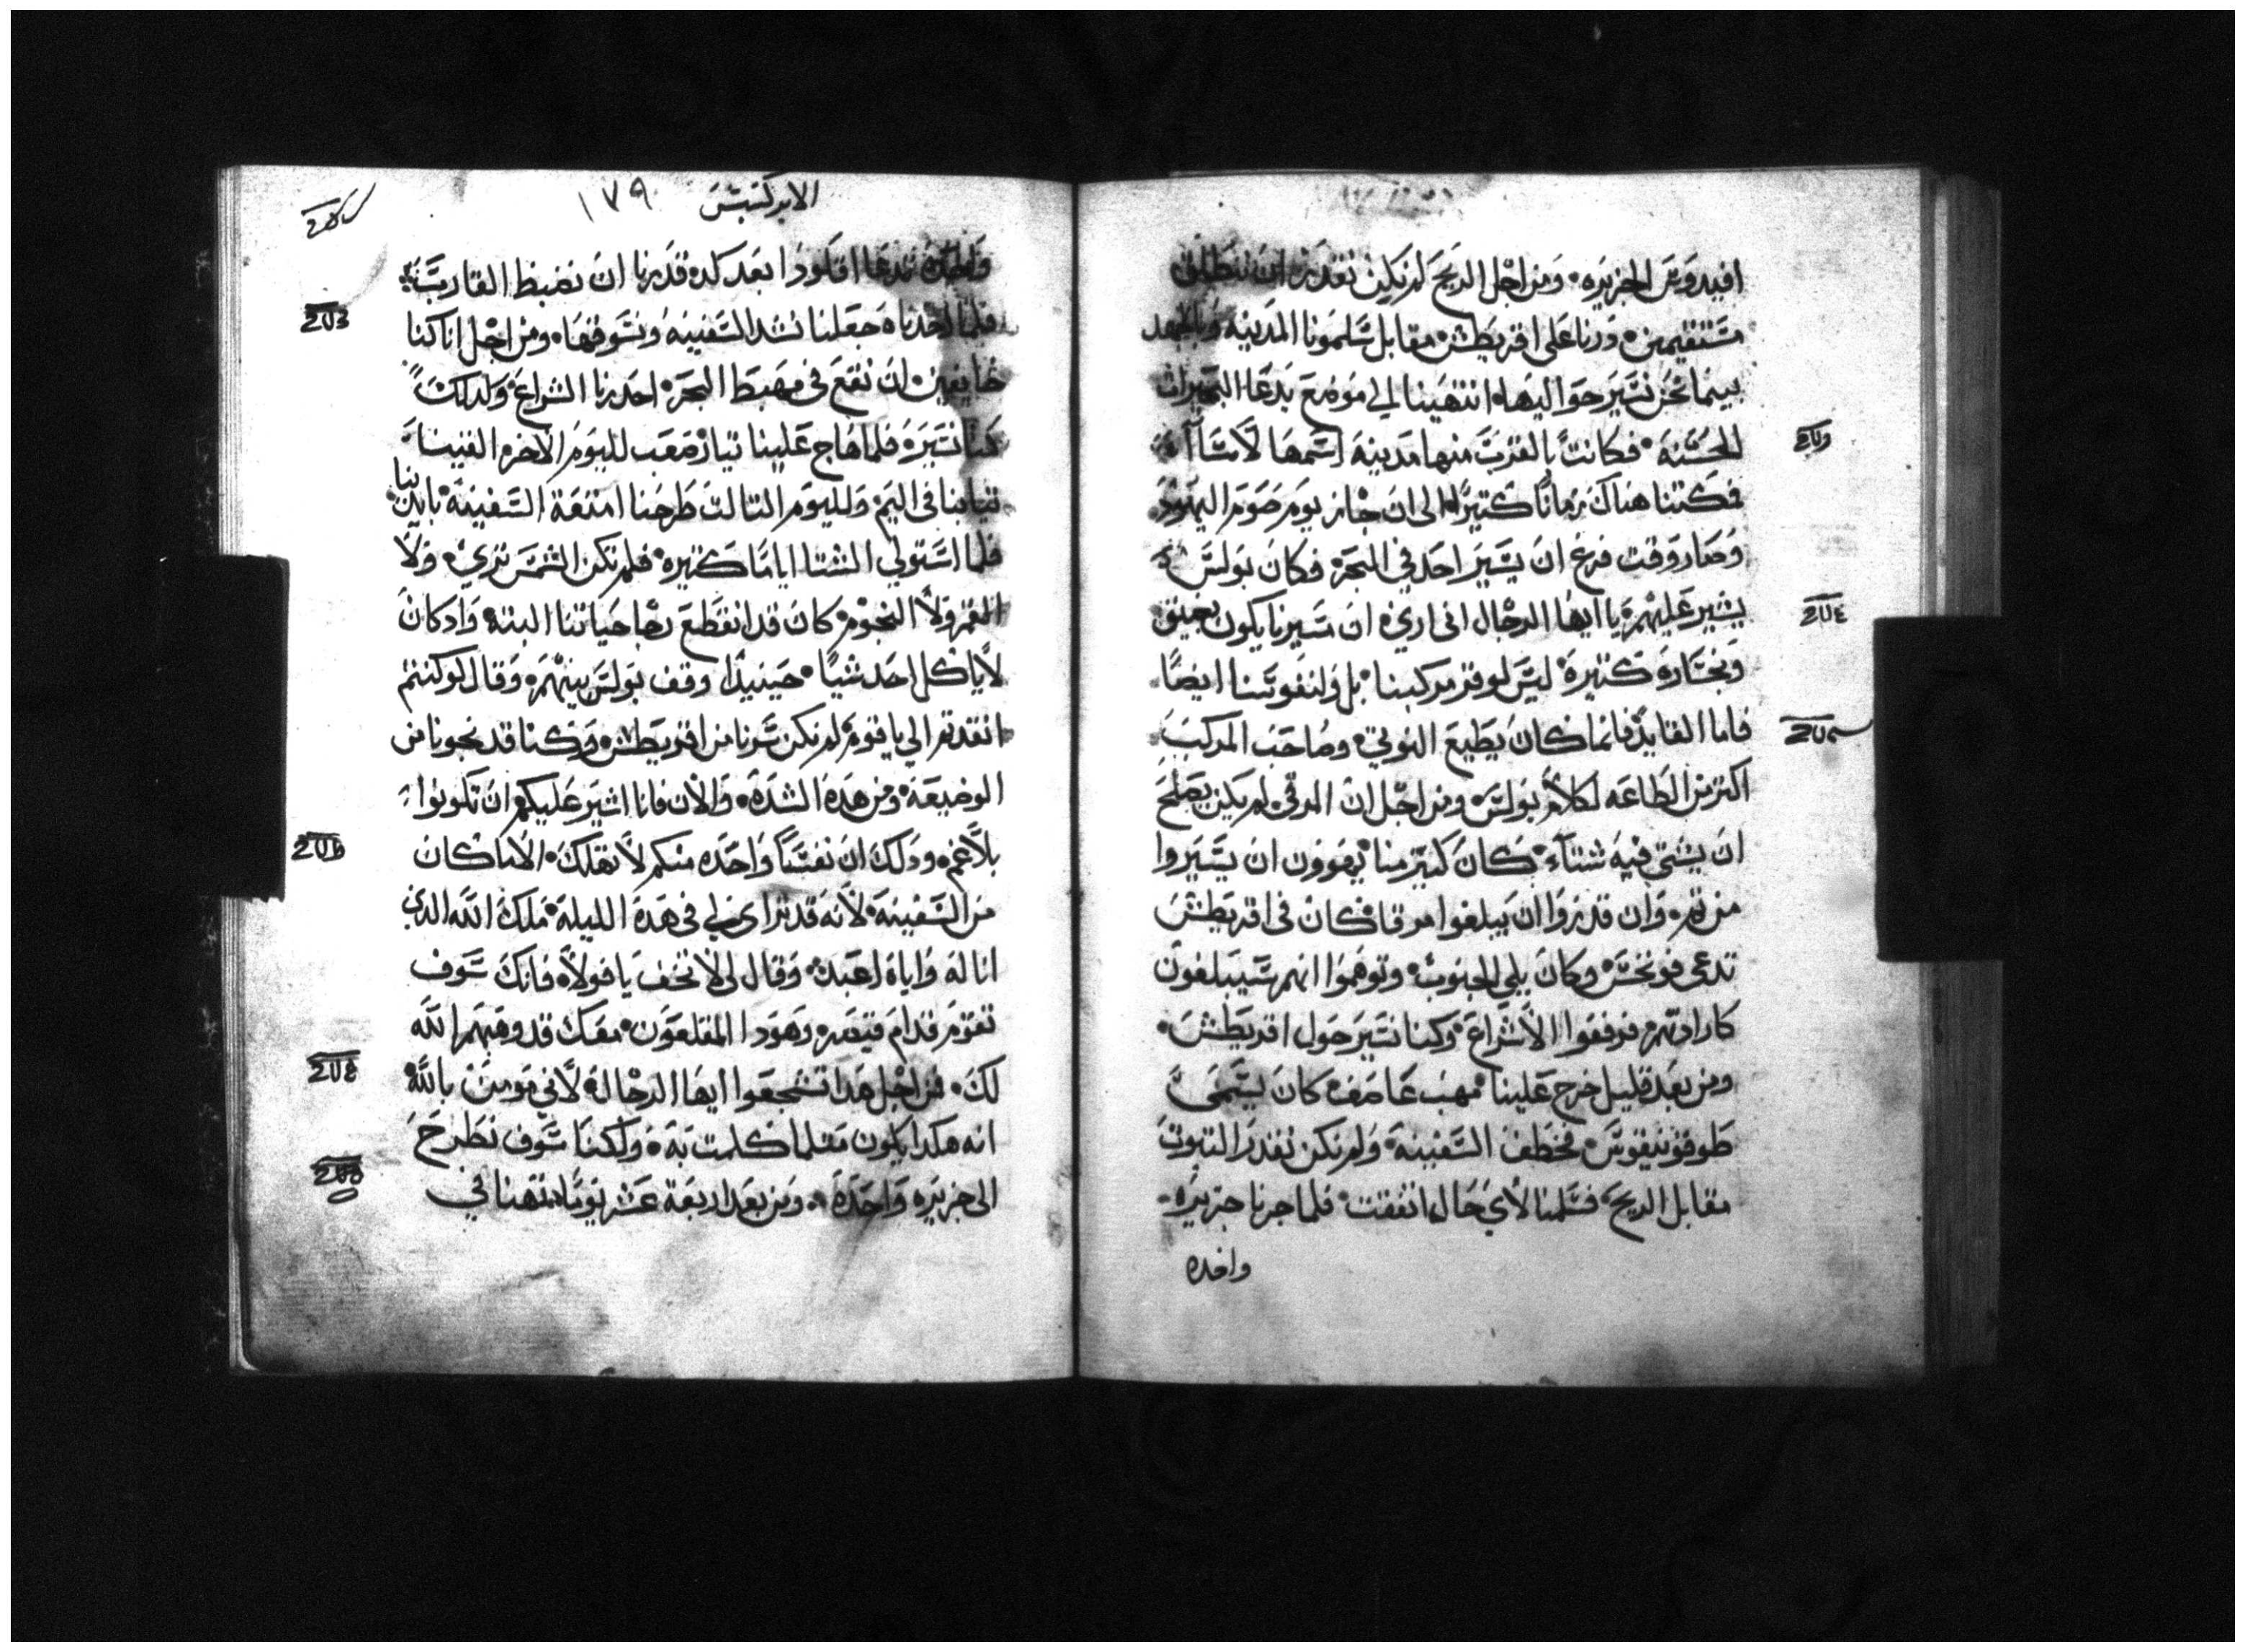 افيدوس الجزيره ومن اجل الريح لم نكن نقدر ان ننطلق
مستقيمين ودرنا على اقريطش مقابل سلمونا المدينه وبالجهد
بينما نحن نسير حواليها انتهينا الي موضع يدعا المينات
الحسنه فكانت بالقرب منها مدينه اسمها لاسااا
فمكتنا هناك زمانا كتيرا الى ان جاز يوم صوم اليهود
وصار وقت فزع ان يسير احد في البحر فكان بولس
يشير عليهم يا ايها الرجال انى اري ان مسيرنا يكون بضيق
وبخساره كتيرة ليس لوقر مركبنا بل ولنفوسنا ايضا
فاما القايد فانما كان يطيع النوتي وصاحب المركب
اكتر من الطاعه لكلام بولس ومن اجل ان المرقى لم يكن يصلح
ان يشتى فيه شتاء كان كتير منا يهوون ان يسيروا
من تم وان قدروا ان يبلغوا مرقا كان فى اقريطش
تدعى فونخس وكان يلى الجنوب وتوهموا انهم سيبلغون
كارادتهم فرفعوا الاشراع وكنا نسير حول اقريطش
ومن بعد قليل خرج علينا مهب عاصف كان يسمى
طوفونيقوس فخطف السفينه ولم نكن نقدر التبوت
مقابل الريح فسلمنا لاي حال اتفقت فلما جزنا جزيره
واحده
الابركسيس ١٧٩
واحدة تدعا اقلودا بعد كد قدرنا ان نضبط القارب
فلما اخدناه جعلنا نشد السفينه ونسوقها ومن اجل انا كنا
خايفين ان نقع في مهبط البحر احدرنا الشراع وكدلك
كنا نسير فلما هاج علينا تيار صعب لليوم الاخر القينا
تيابنا فى اليم ولليوم التالت طرحنا امتعة السفينة بايدينا
فلما استولى الشتا اياما كتيره فلم تكن الشمس تري ولا
القمر ولا النجوم كان قد انقطع رجا حياتنا البته واد كان
لا ياكل احد شيا حينيدا وقف بولس بينهم وقال لو كنتم
انقدتم الي يا قوم لم نكن سرنا من اقريطش وكنا قد نجونا من
الوضيعة ومن هده الشده والان فانا اشير عليكم ان تكونوا
بلا غم ودلك ان نفسا واحده منكم لا تهلك الا ما كان
من السفينة لانه قد تراى لي فى هده الليلة ملك الله الدي
انا له واياه اعبد وقال لى لا تخف يا فولا فانك سوف
تقوم قدام قيصر وهودا المقلعون معك قد وهبهم الله
لك من اجل هدا تشجعوا ايها الرجال لاني مومن بالله
انه هكدا يكون متلما كلمت به ولكنا سوف نطرح
الى جزيره واحدة ومن بعد اربعة عشر يوما تهنا في